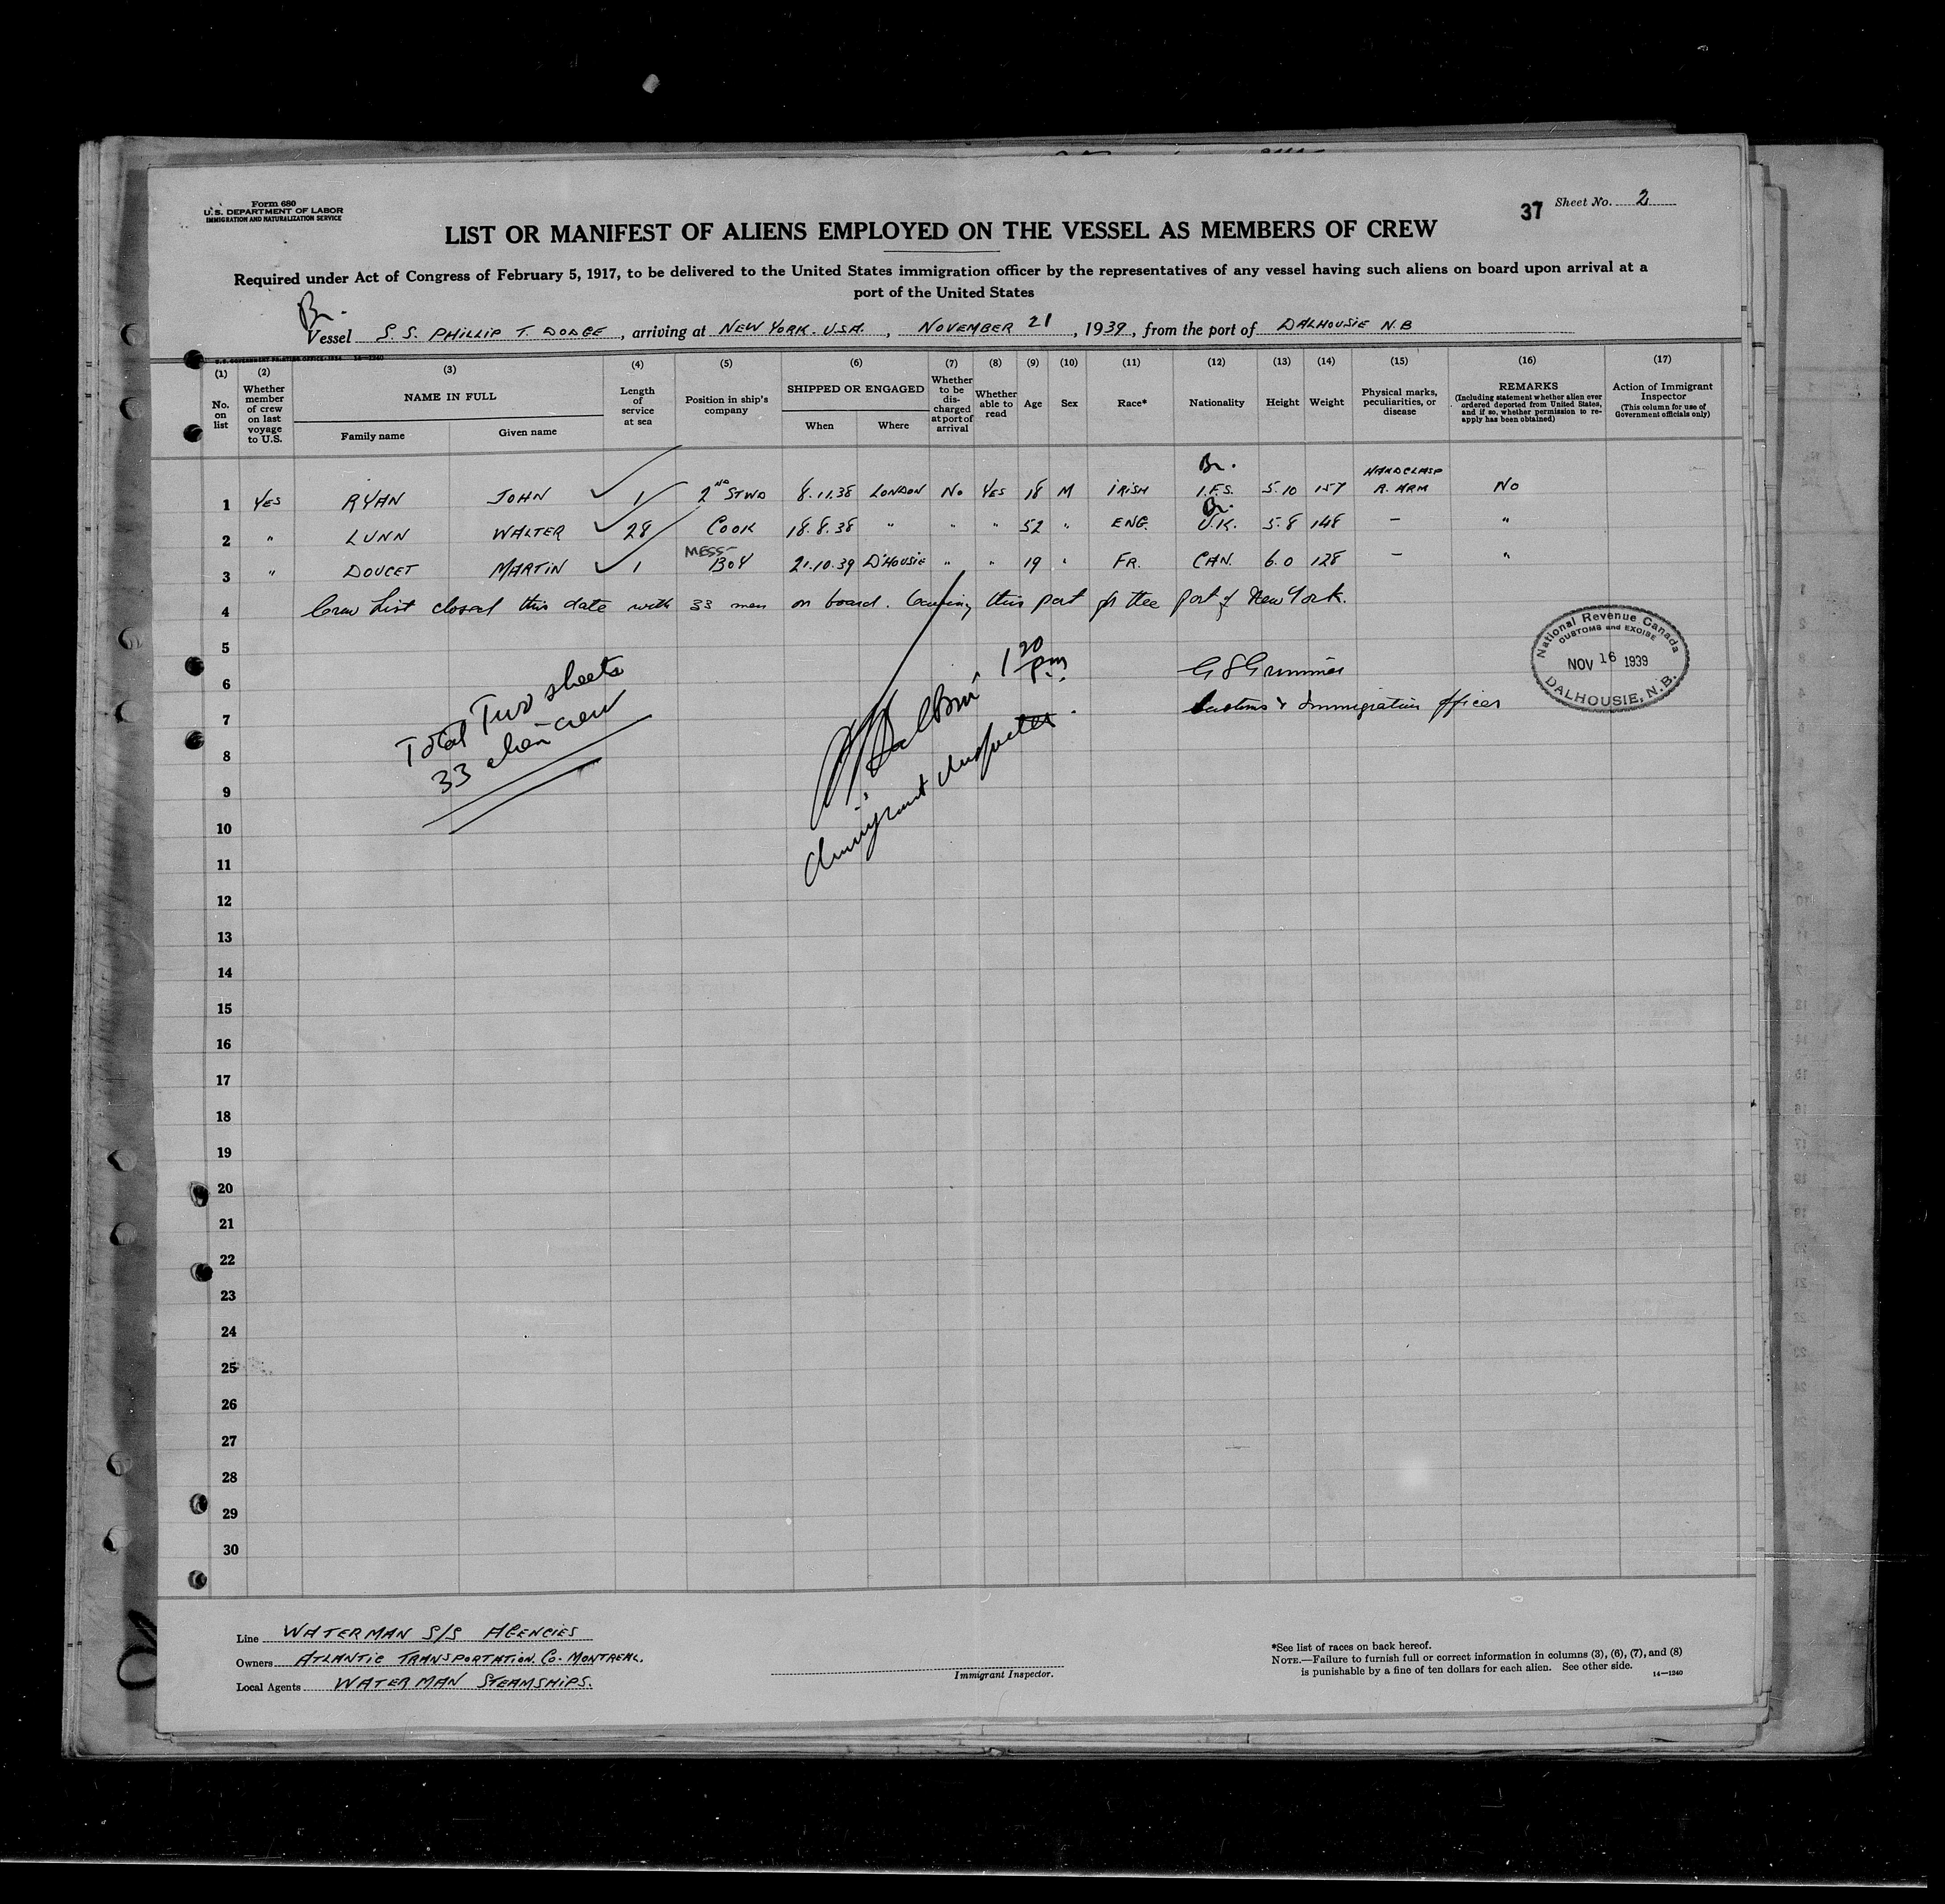 Form 680
U. S. DEPARTMENT OF LABOR
IMMIGRATION AND NATURALIZATION SERVICE
37 Sheet No. 2
LIST OR MANIFEST OF ALIENS EMPLOYED ON THE VESSEL AS MEMBERS OF CREW
Required under Act of Congress of February 5, 1917, to be delivered to the United States immigration officer by the representatives of any vessel having such aliens on board upon arrival at a
port of the United States
Br.
Vessel S. S. PHILLIP T. DODGE, arriving at NEW YORK. U.S.A., NOVEMBER 21, 1939, from the port of DALHOUSIE N.B
(1) (2) (3) (4) (5) (6) (7) (8) (9) (10) (11) (12) (13) (14) (15) (16) (17)
No. on list
Whether member of crew on last voyage to U.S.
NAME IN FULL
Family name Given name
Length of service at sea
Position in ship's company
SHIPPED OR ENGAGED
When Where
Whether to be discharged at port of arrival
Whether able to read
Age
Sex
Race*
Nationality
Height
Weight
Physical marks, peculiarities, or disease
REMARKS
(Including statement whether alien ever ordered deported from United States, and if so, whether permission to re-apply has been obtained)
Action of Immigrant Inspector
(This column for use of Government officials only)
1 YES RYAN JOHN 1 2ND STWD 8.11.38 LONDON NO YES 18 M IRISH Br. I.F.S. 5.10 157 HANDCLASP R. ARM NO
2 " LUNN WALTER 28 COOK 18.8.38 " " " 52 " ENG. Br. U.K. 5.8 148 — "
3 " DOUCET MARTIN 1 MESS-BOY 21.10.39 D'HOUSIE " " 19 " FR. CAN. 6.0 128 — "
4 Crew List closed this date with 33 men on board. leaving this port for the port of New York.
5
6
7
8
9
10
11
12
13
14
15
16
17
18
19
20
21
22
23
24
25
26
27
28
29
30
Total Two sheets
33 alien crew
1 20 pm
Immigrant Inspector.
G S Grimmer
Customs & Immigration Officer
National Revenue Canada
CUSTOMS and EXCISE
NOV 16 1939
DALHOUSIE, N.B.
Line WATERMAN S/S AGENCIES
Owners ATLANTIC TRANSPORTATION. CO. MONTREAL.
Local Agents WATERMAN STEAMSHIPS.
Immigrant Inspector.
*See list of races on back hereof.
NOTE.—Failure to furnish full or correct information in columns (3), (6), (7), and (8)
is punishable by a fine of ten dollars for each alien. See other side.
14—1240